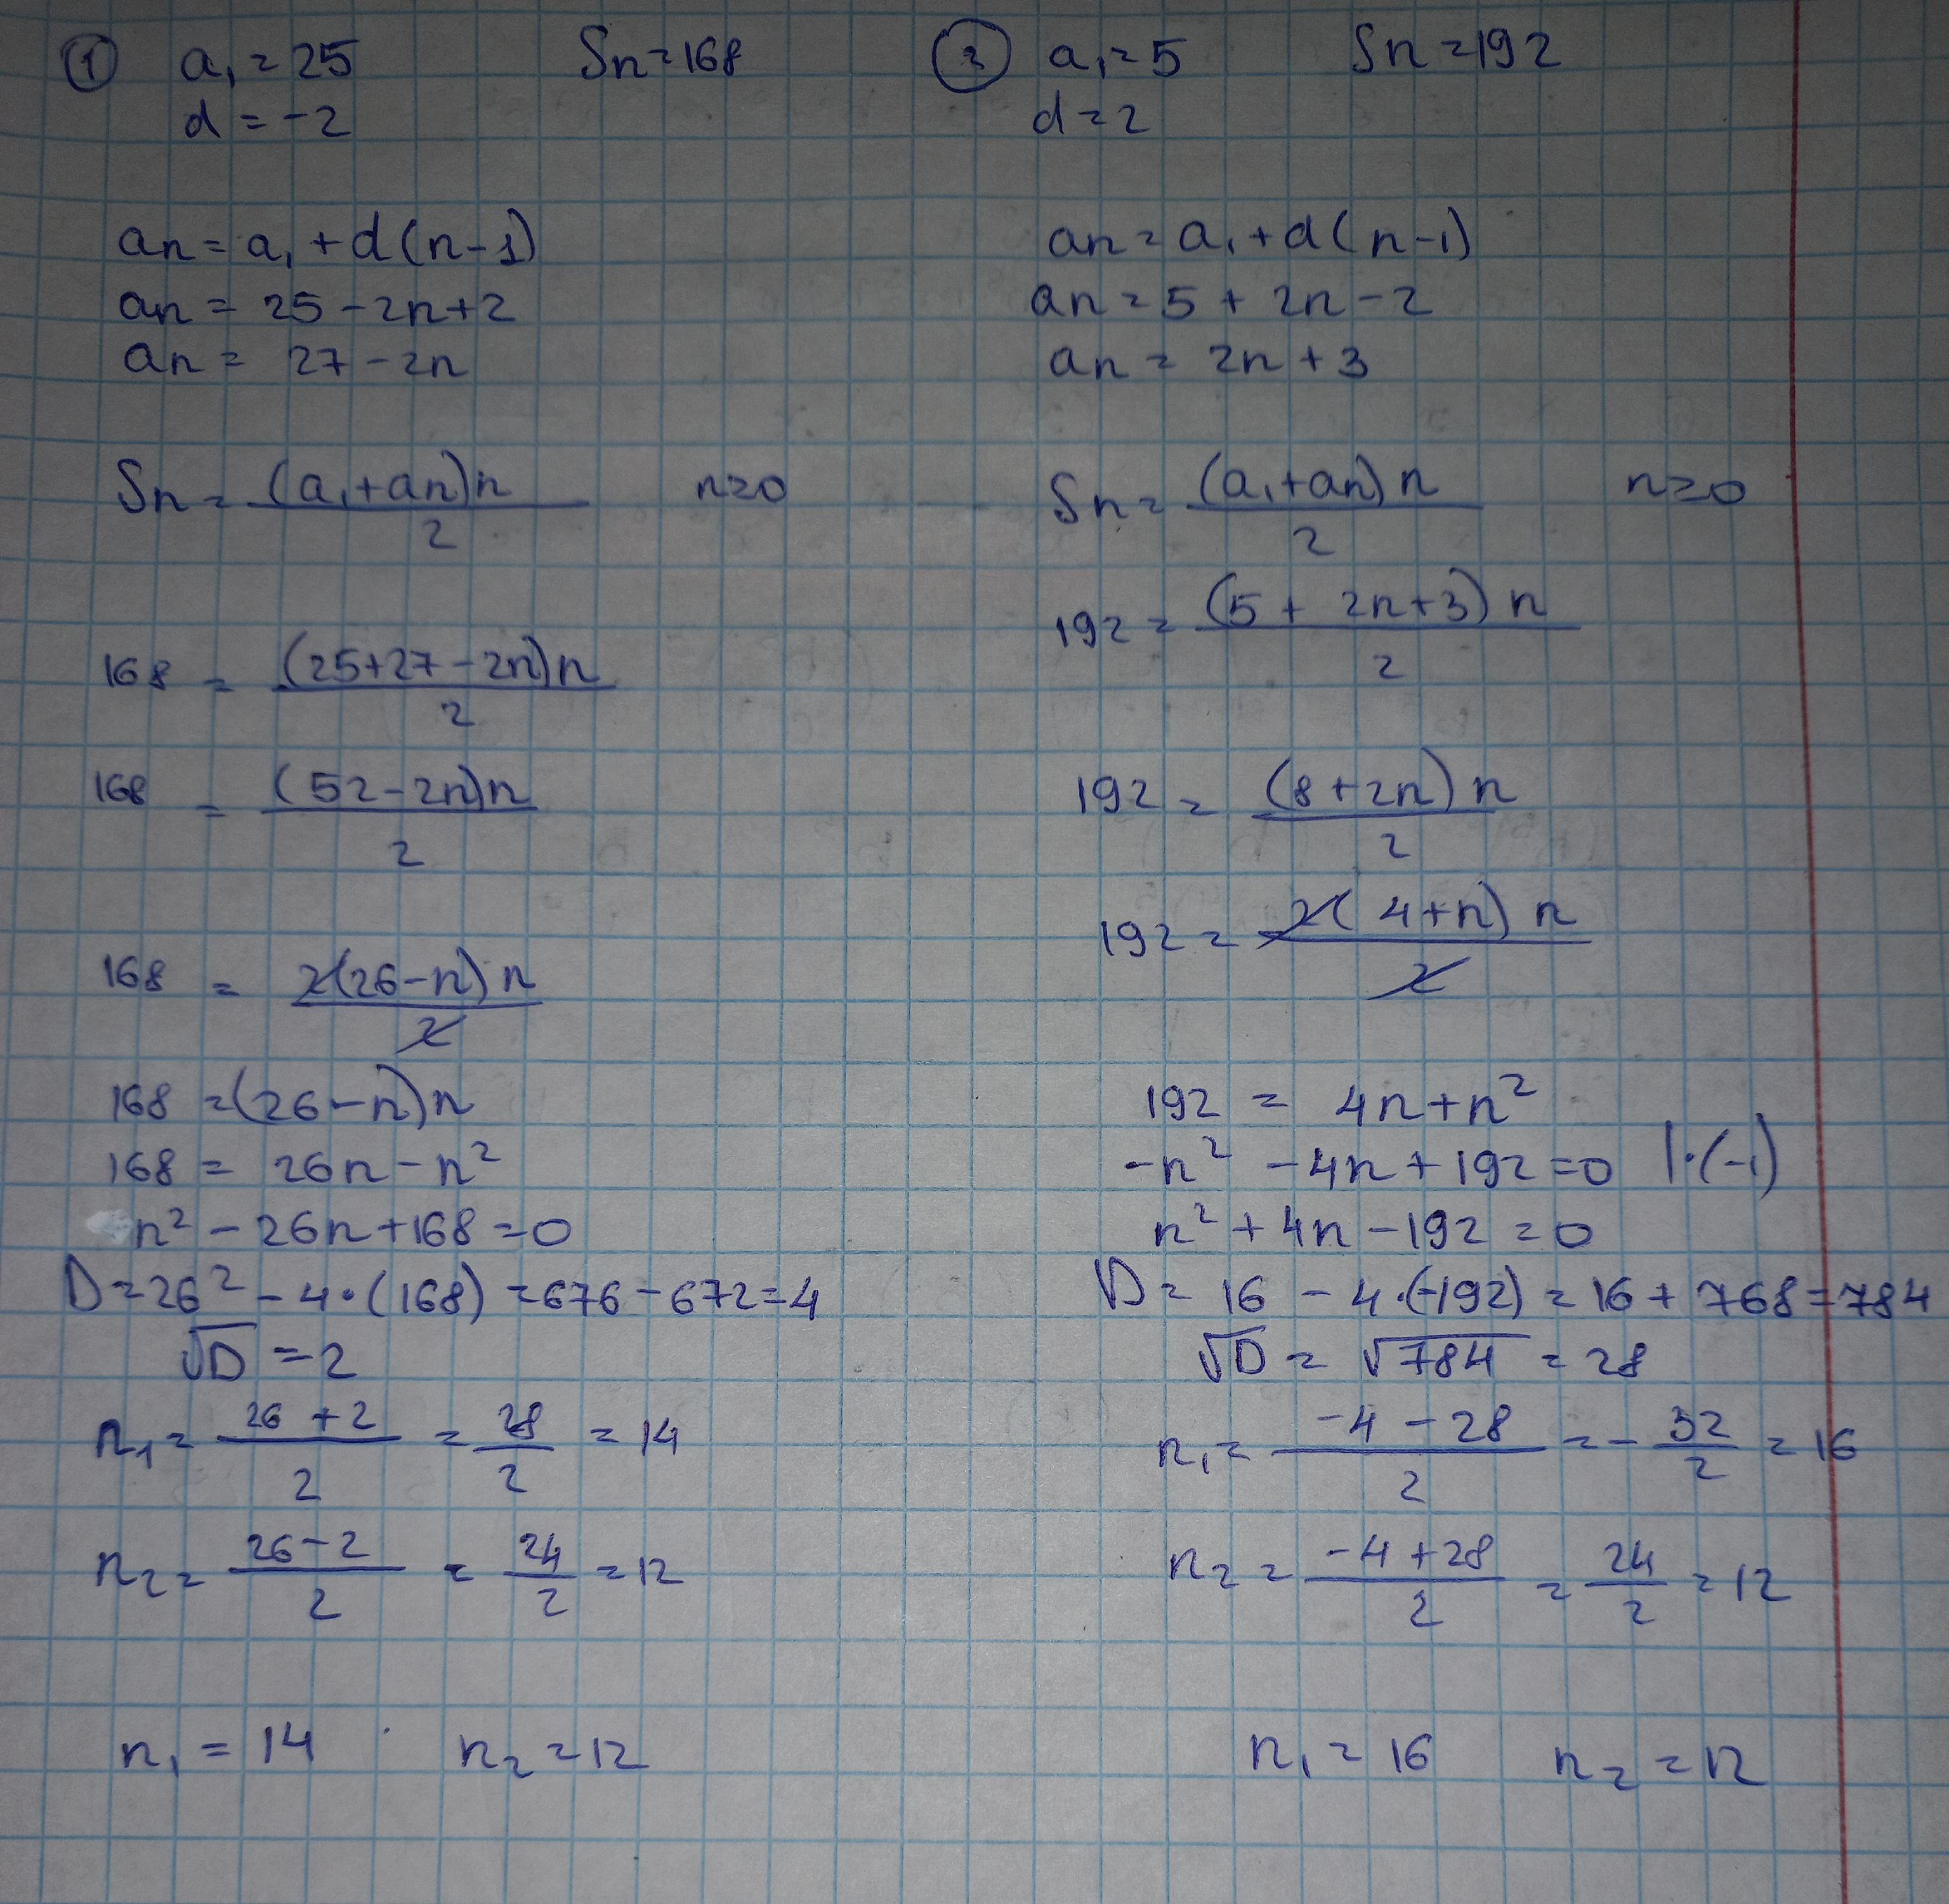 ① a₁ = 25 Sn = 168
d = -2
an = a₁ + d(n-1)
an = 25 - 2n + 2
an = 27 - 2n
Sn = (a₁+an)n / 2 n≥0
168 = (25+27-2n)n / 2
168 = (52-2n)n / 2
168 = 2(26-n)n / 2
168 = (26-n)n
168 = 26n - n²
n² - 26n + 168 = 0
D = 26² - 4·(168) = 676 - 672 = 4
√D = 2
n₁ = (26+2) / 2 = 28/2 = 14
n₂ = (26-2) / 2 = 24/2 = 12
n₁ = 14 n₂ = 12
② a₁ = 5 Sn = 192
d = 2
an = a₁ + d(n-1)
an = 5 + 2n - 2
an = 2n + 3
Sn = (a₁+an)n / 2 n≥0
192 = (5 + 2n+3)n / 2
192 = (8+2n)n / 2
192 = 2(4+n)n / 2
192 = 4n + n²
-n² - 4n + 192 = 0 |·(-1)
n² + 4n - 192 = 0
D = 16 - 4·(-192) = 16 + 768 = 784
√D = √784 = 28
n₁ = (-4 - 28) / 2 = - 32/2 = 16
n₂ = (-4 + 28) / 2 = 24/2 = 12
n₁ = 16 n₂ = 12